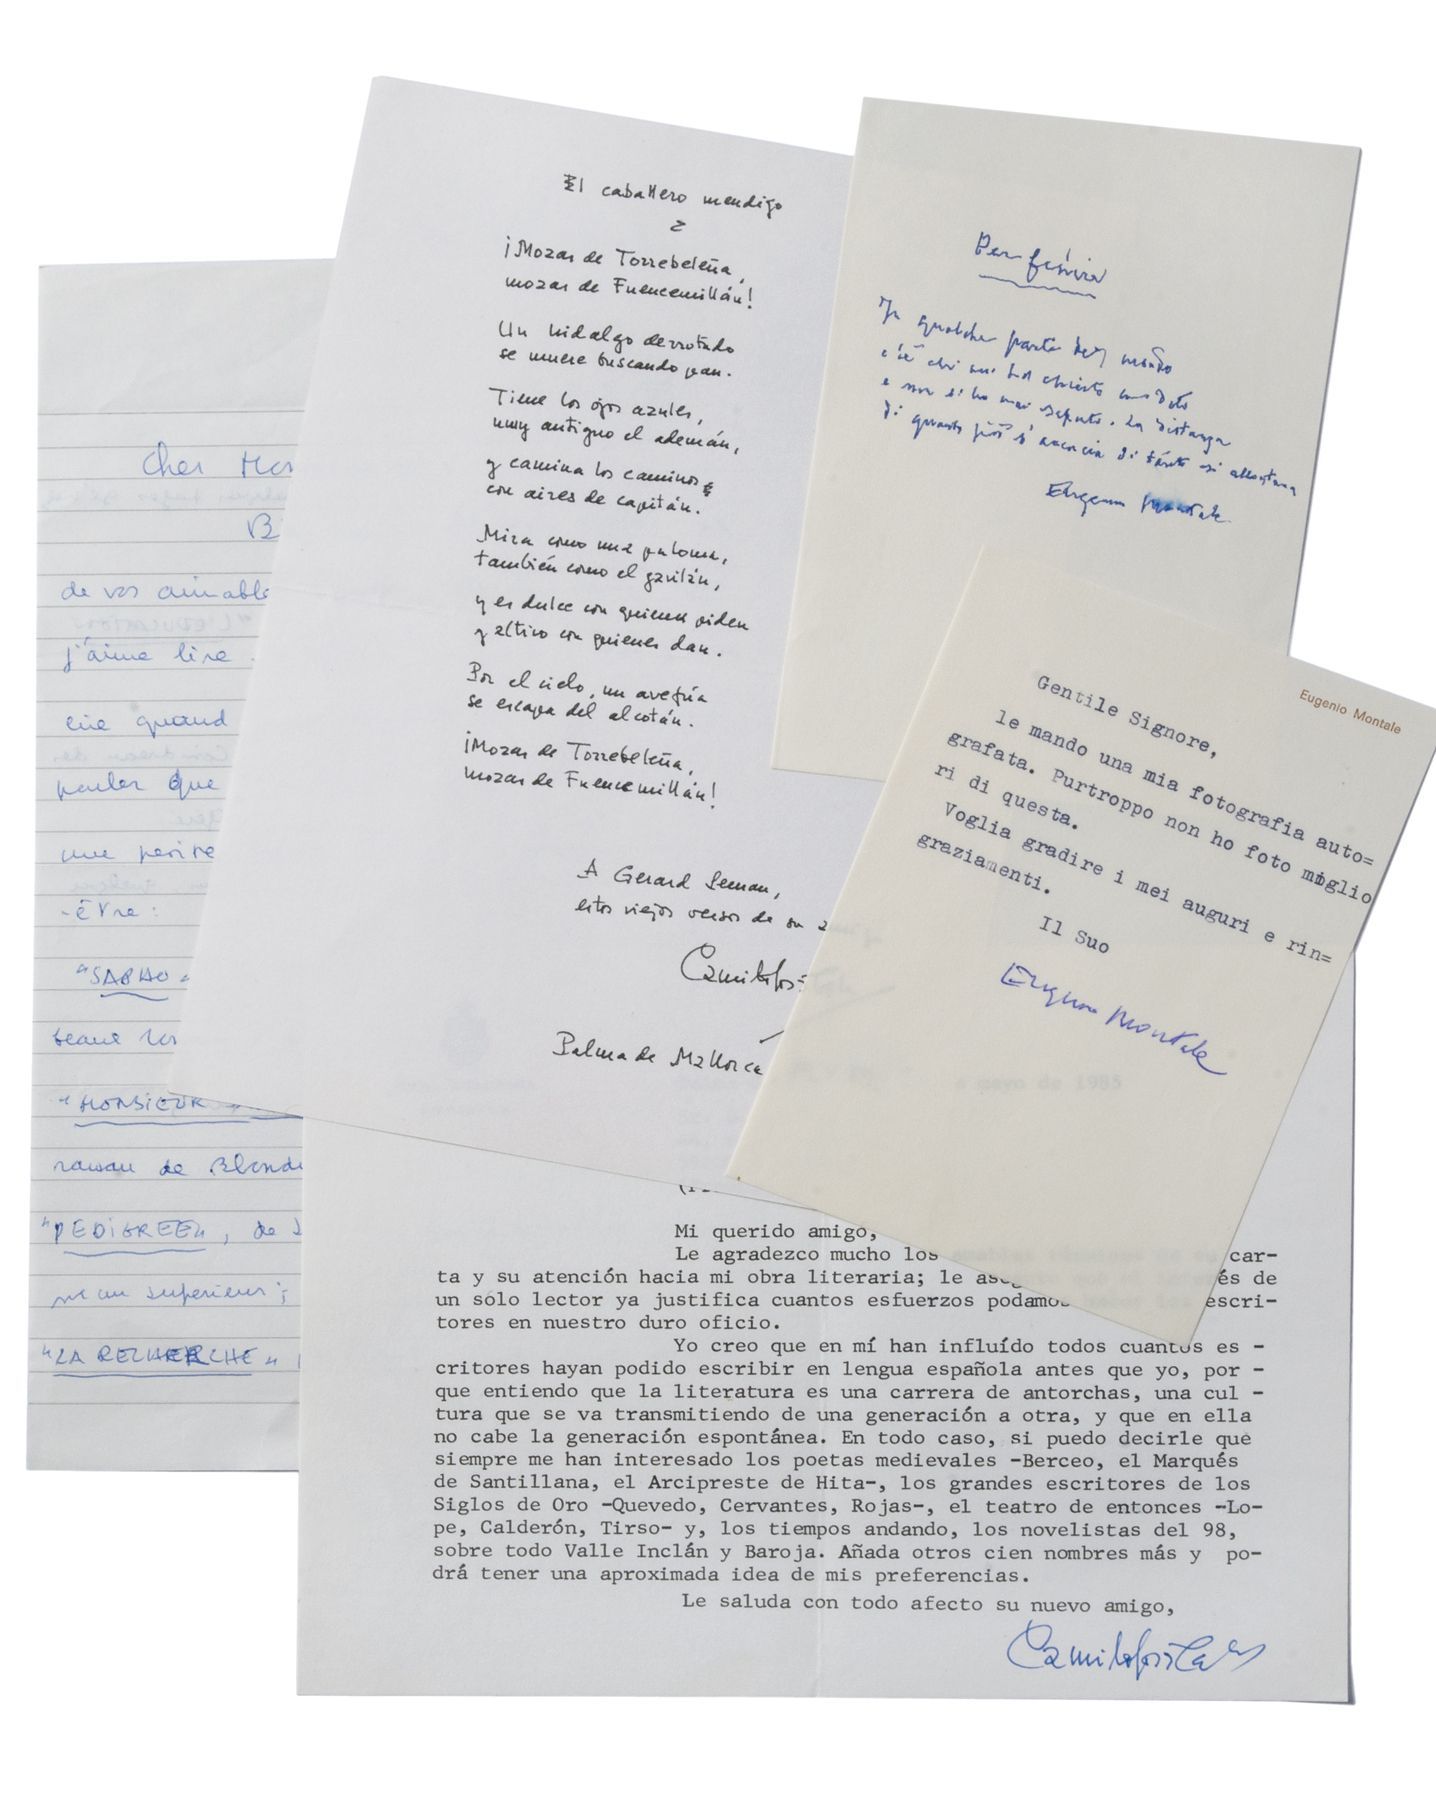 El caballero mendigo
¡Mozas de Torrebeleña,
mozas de Fuencemillán!
Un hidalgo derrotado
se muere buscando pan.
Tiene los ojos azules,
muy antiguo el ademán,
y camina los caminos
con aires de capitán.
Mira como una paloma,
también como el gavilán,
y es dulce con quienes piden
y altivo con quienes dan.
Por el cielo, un avefría
se escapa del alcotán.
¡Mozas de Torrebeleña,
mozas de Fuencemillán!
A Gerard
estos viejos versos de su
Camilo José
Palma de Mallorca
Per finire
In qualche parte del mondo
c'è chi mi ha chiesto un dito
e non si ha mai saputo. La distanza
di quanto più s'accorcia di tanto si allontana
Eugenio Montale
Eugenio Montale
Gentile Signore,
le mando una mia fotografia auto=
grafata. Purtroppo non ho foto miglio
ri di questa.
Voglia gradire i mei auguri e rin=
graziamenti.
Il Suo
Eugenio Montale
Cher
de vos aimable
j'aime lire
quand
parler que
une
-être:
"SAPHO"
beau
"MONSIEUR
de Blondi
"PEDIGREE", de
supérieur;
"LA RECHERCHE"
mayo de 1985
Mi querido amigo,
Le agradezco mucho los amables términos de su car-
ta y su atención hacia mi obra literaria; le aseguro que el interés de
un sólo lector ya justifica cuantos esfuerzos podamos hacer los escri-
tores en nuestro duro oficio.
Yo creo que en mí han influído todos cuantos es -
critores hayan podido escribir en lengua española antes que yo, por -
que entiendo que la literatura es una carrera de antorchas, una cul -
tura que se va transmitiendo de una generación a otra, y que en ella
no cabe la generación espontánea. En todo caso, si puedo decirle que
siempre me han interesado los poetas medievales -Berceo, el Marqués
de Santillana, el Arcipreste de Hita-, los grandes escritores de los
Siglos de Oro -Quevedo, Cervantes, Rojas-, el teatro de entonces -Lo-
pe, Calderón, Tirso- y, los tiempos andando, los novelistas del 98,
sobre todo Valle Inclán y Baroja. Añada otros cien nombres más y po-
drá tener una aproximada idea de mis preferencias.
Le saluda con todo afecto su nuevo amigo,
Camilo José Cela